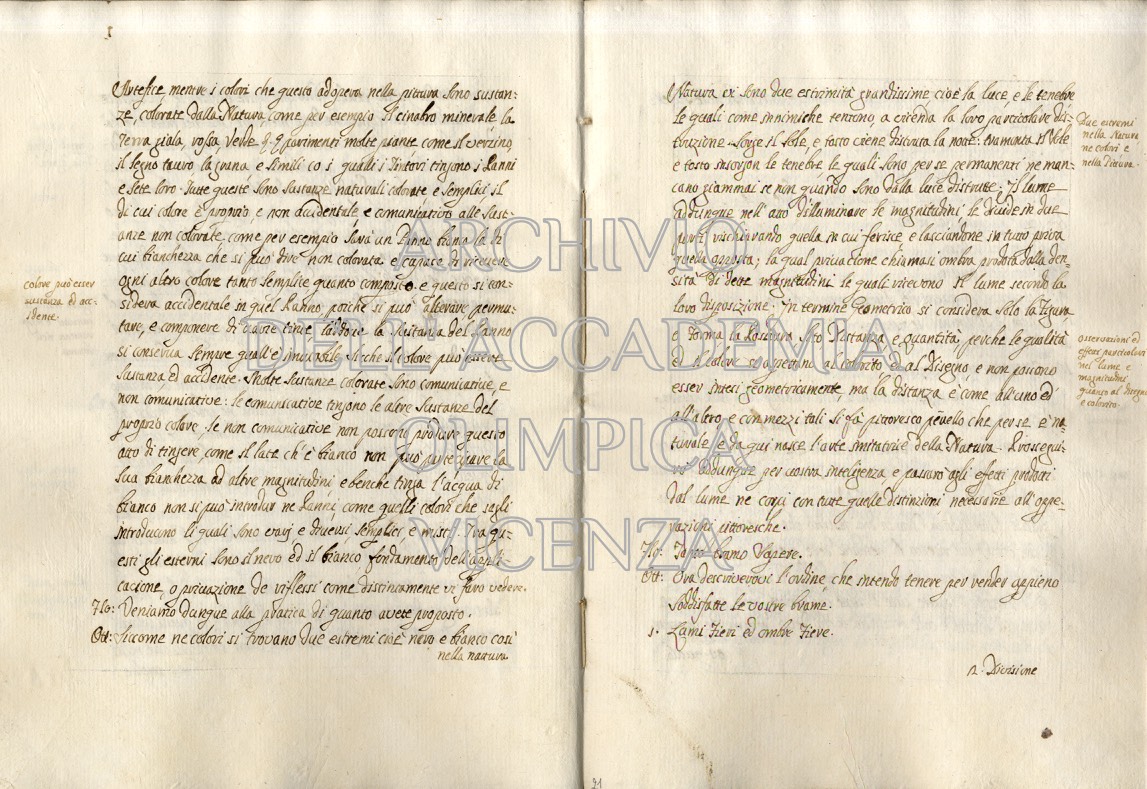 Artefice mentre i colori che questo adopera nella pittura sono sustan=
ze, colorate dalla Natura, come per esempio il cinabro minerale, la
Terra giala, rossa Verde parimenti molte piante come il verzino,
il legno tauro, la grana e simili co i quali i Tintori tinjono i Panni
e Sete loro. Tutte queste sono sustanze naturali colorate e semplici il
di cui colore è proprio, e non accidentale, e comunicativo alle sust=
anze non colorate, come per esempio sarà un Panno biano la di
cui bianchezza che si può dire non colorata e capace di ricevere
ogni altro colore tanto semplice quanto composto, e questo si con=
sidera accidentale in quel Panno, poiché si può alterare permu=
tare, e componere di varie tinte la dove la sustanza del Panno
si conserva sempre quall'è imutabile, si che il colore può essere
sustanza ed accidente. Molte sustanze colorate sono comunicative, e
non comunicative: le comunicative tinjono le altre sustanze del
proprio colore, le non comunicative non possono produre questo
atto di tinjere, come il late ch'è bianco non può partecipare la
sua bianchezza ad altre magnitudini e benche tinja l'acqua di
bianco non si può introdur ne Panni come quelli colori che segli
introducono li quali sono varj e diversi semplici, e misti. Tra qu=
esti gli estremi sono il nero ed il bianco fondamenti dell'appli=
cacione, o privazione de riflessi come distintamente vi farò vedere.
Flo: Veniamo dunque alla pratica di quanto avete proposto.
Ott: Siccome ne colori si trovano due estremi cioè nero e bianco così
nella nattura
colore può esser
sustanza ed acc:
idente.
Natura vi sono due estrimità grandissime cioè la luce, e le tenebre
le quali come innimiche tentono, a vicenda la loro particolare dis=
truzione. Sorge il Sole, e tosto viene distruta la note: tramonta il Sole
e tosto insorjon le tenebre, le quali sono per se permanenti ne man=
cano giammai se non quando sono dalla luce distrutte; Il lume
addunque nell'atto d'illuminare le magnitudini, le divide in due
parti rischiarando quella in cui ferisce e lasciandone in tutto priva
quella opposta; la qual privacione chiamasi ombra prodota dalla den=
sità di dette magnitudini le quali ricevono il lume secondo la
loro disposizione. In termine Geometrico si considera solo la Figura
e Forma la Positura sito Distanza e quantità, perche le qualità
ed il colore si aspettano al Colorito ed al Disegno e non possono
esser intesi geometricamente ma la distanza è come all'uno ed
all'altro, e con mezzi tali si fà pitoresco quello che per se è na=
turale, e da qui nasce l'arte imitatrice della Natura. Prosegui=
rò addunque per vostra inteligenza e passarò agli effeti prodoti
dal lume ne corpi con tute quelle distinzioni necessarie all'oppe=
razioni pittoresche.
Flo: Tanto bramo sapere.
Ott: Ora descrivervi l'ordine che intendo tenere per render appieno
soddisfatte le vostre brame.
1. Lumi Fieri ed ombre Fiere.
2. Divisione
Due estremi
nella Natura
ne colori e
nella Pittura.
osservazioni ed
effeti particolari
nel lume e
magnitudini
quanto al Disegno
e colorito.
21
ARCHIVIO
DELL'ACCADEMIA
OLIMPICA
VICENZA